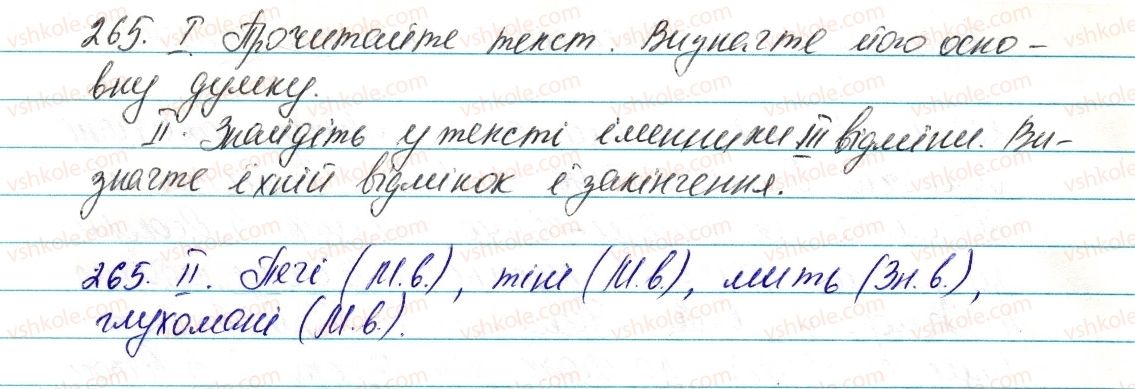 265. І Прочитайте текст. Визначте його осно-
вну думку.
ІІ. Знайдіть у тексті іменники ІІІ відміни. Ви-
значте їхній відмінок і закінчення.
265. ІІ. Печі (М.в.), тіні (М.в.), мить (Зн.в.),
глухомані (М.в.).